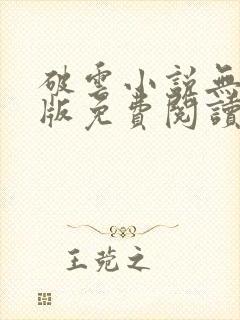 破雲小説無
版免費閱讀
王菀之